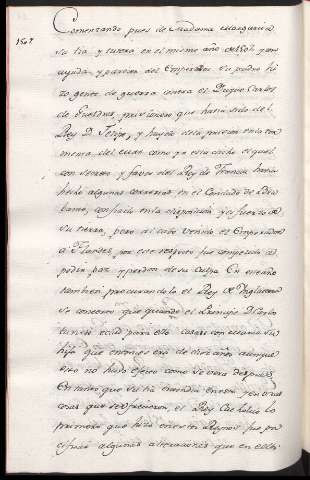 1507
Comenzando pues de Madama Margarita
su tia, y tutora en el mismo año de 1507 con
ayuda, y parecer del Emperador su padre hi
zo gente de guerra contra el Duque Carlos
de Gueldres, prisionero que havia sido del
Rey D. Felipe, y huyó de la prision en la tor
menta del mar como ya esta dicho el qual
con secreto y favor del Rey de Francia havia
hecho algunas correrias en el Condado de Bra
bante, confiado en la disposicion y la fuerza de
su tierra, pero al cabo venido el Emperador
a Flandes por este respeto fue compelido a
pedir paz y perdon de su culpa. En este año
tambien procurandolo el Rey de Inglaterra
se concertó que quando el Principe D. Carlos
tuviese edad para ello casase con Maria su
hija que entonces era de diez años aunque
esto no huvo efecto como se verá despues
En tanto que su tia entendia en esto y en otras
cosas que se ofrecieron, el Rey Catholico lo
primero que hizo en estos Reynos fue pa
cificar algunas alteraciones que en ellos